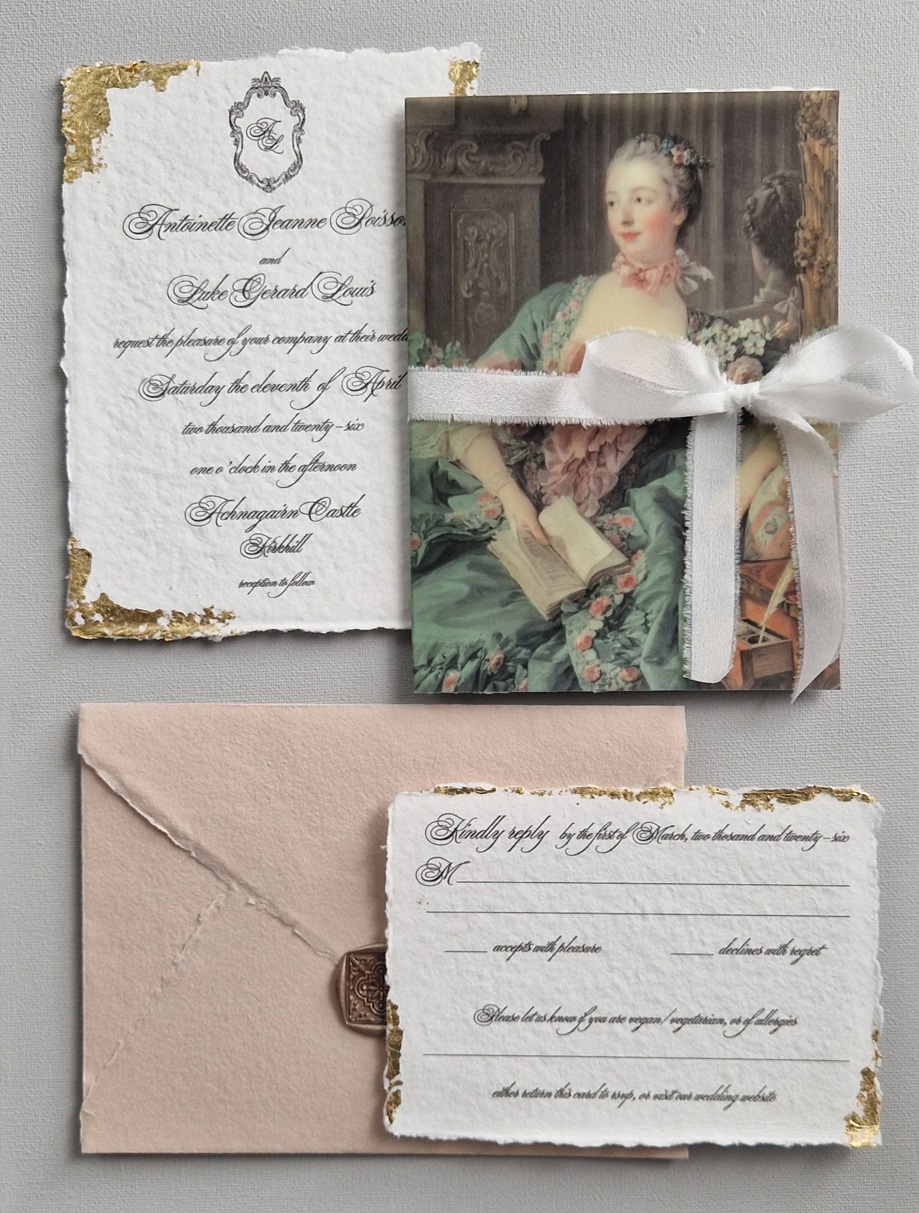 AL
Antoinette Jeanne Poisson
and
Luke Gerard Louis
request the pleasure of your company at their wedd
Saturday the eleventh of April
two thousand and twenty-six
one o'clock in the afternoon
Achnagairn Castle
Kirkhill
reception to follow
Kindly reply by the first of March, two thosand and twenty-six
M
accepts with pleasure declines with regret
Please let us know if you are vegan/vegetarian, or of allergies
either return this card to rsvp, or visit our wedding website